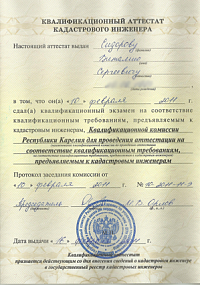 КВАЛИФИКАЦИОННЫЙ АТТЕСТАТ
КАДАСТРОВОГО ИНЖЕНЕРА
Настоящий аттестат выдан Сидорову
Виталию
Сергеевичу
в том, что он(а) "10" февраля 2011 г.
сдал(а) квалификационный экзамен на соответствие
квалификационным требованиям, предъявляемым к
кадастровым инженерам, Квалификационной комиссии
Республики Карелия для проведения аттестации на
соответствие квалификационным требованиям,
предъявляемым к кадастровым инженерам
Протокол заседания комиссии от
"10" февраля 2011 г. №
Председатель М.П. Орлов
Дата выдачи февраля г.
Квалификационный аттестат
признается действующим со дня внесения сведений о кадастровом инженере
в государственный реестр кадастровых инженеров